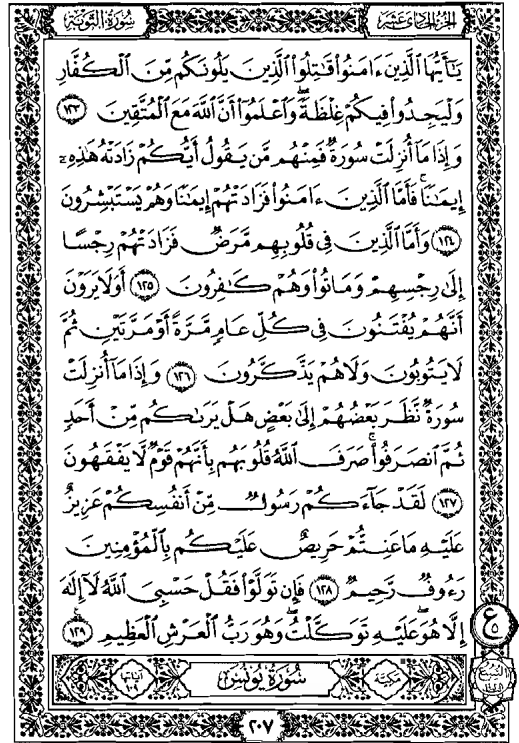 الجزء الحادي عشر
سورة التوبة
يَـٰٓأَيُّهَا ٱلَّذِينَ ءَامَنُوا۟ قَـٰتِلُوا۟ ٱلَّذِينَ يَلُونَكُم مِّنَ ٱلْكُفَّارِ
وَلْيَجِدُوا۟ فِيكُمْ غِلْظَةً ۚ وَٱعْلَمُوٓا۟ أَنَّ ٱللَّهَ مَعَ ٱلْمُتَّقِينَ ١٢٣
وَإِذَا مَآ أُنزِلَتْ سُورَةٌ فَمِنْهُم مَّن يَقُولُ أَيُّكُمْ زَادَتْهُ هَـٰذِهِۦٓ
إِيمَـٰنًا ۚ فَأَمَّا ٱلَّذِينَ ءَامَنُوا۟ فَزَادَتْهُمْ إِيمَـٰنًا وَهُمْ يَسْتَبْشِرُونَ
١٢٤ وَأَمَّا ٱلَّذِينَ فِى قُلُوبِهِم مَّرَضٌ فَزَادَتْهُمْ رِجْسًا
إِلَىٰ رِجْسِهِمْ وَمَاتُوا۟ وَهُمْ كَـٰفِرُونَ ١٢٥ أَوَلَا يَرَوْنَ
أَنَّهُمْ يُفْتَنُونَ فِى كُلِّ عَامٍ مَّرَّةً أَوْ مَرَّتَيْنِ ثُمَّ
لَا يَتُوبُونَ وَلَا هُمْ يَذَّكَّرُونَ ١٢٦ وَإِذَا مَآ أُنزِلَتْ
سُورَةٌ نَّظَرَ بَعْضُهُمْ إِلَىٰ بَعْضٍ هَلْ يَرَىٰكُم مِّنْ أَحَدٍ
ثُمَّ ٱنصَرَفُوا۟ ۚ صَرَفَ ٱللَّهُ قُلُوبَهُم بِأَنَّهُمْ قَوْمٌ لَّا يَفْقَهُونَ
١٢٧ لَقَدْ جَآءَكُمْ رَسُولٌ مِّنْ أَنفُسِكُمْ عَزِيزٌ
عَلَيْهِ مَا عَنِتُّمْ حَرِيصٌ عَلَيْكُم بِٱلْمُؤْمِنِينَ
رَءُوفٌ رَّحِيمٌ ١٢٨ فَإِن تَوَلَّوْا۟ فَقُلْ حَسْبِىَ ٱللَّهُ لَآ إِلَـٰهَ
إِلَّا هُوَ ۖ عَلَيْهِ تَوَكَّلْتُ ۖ وَهُوَ رَبُّ ٱلْعَرْشِ ٱلْعَظِيمِ ١٢٩
مكية
سورة يونس
آياتها ١٠٩
٢٠٧